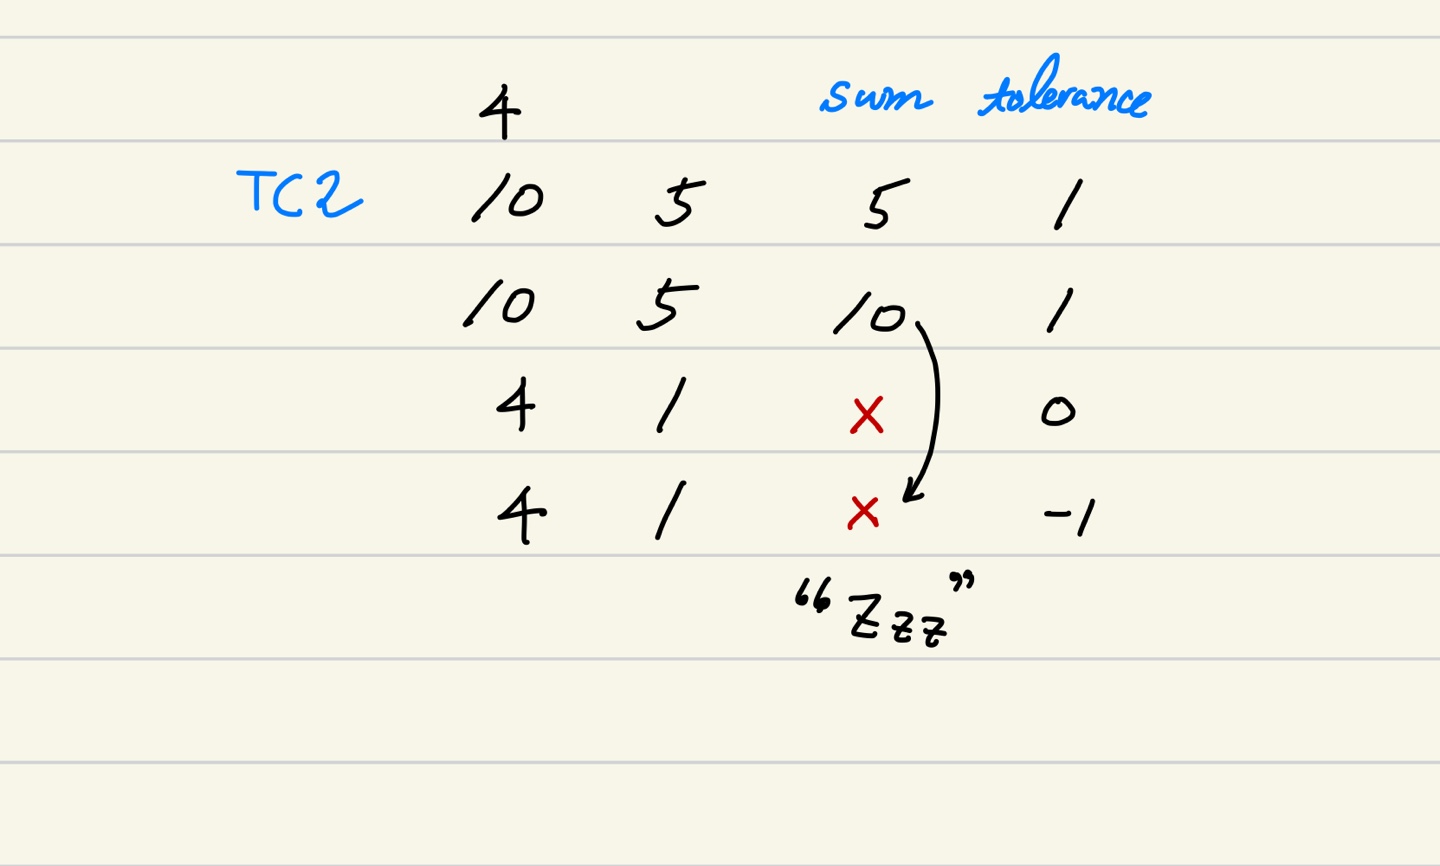 4 sum tolerance
TC2 10 5 5 1
10 5 10 1
4 1 × 0
4 1 × -1
“Zzz”